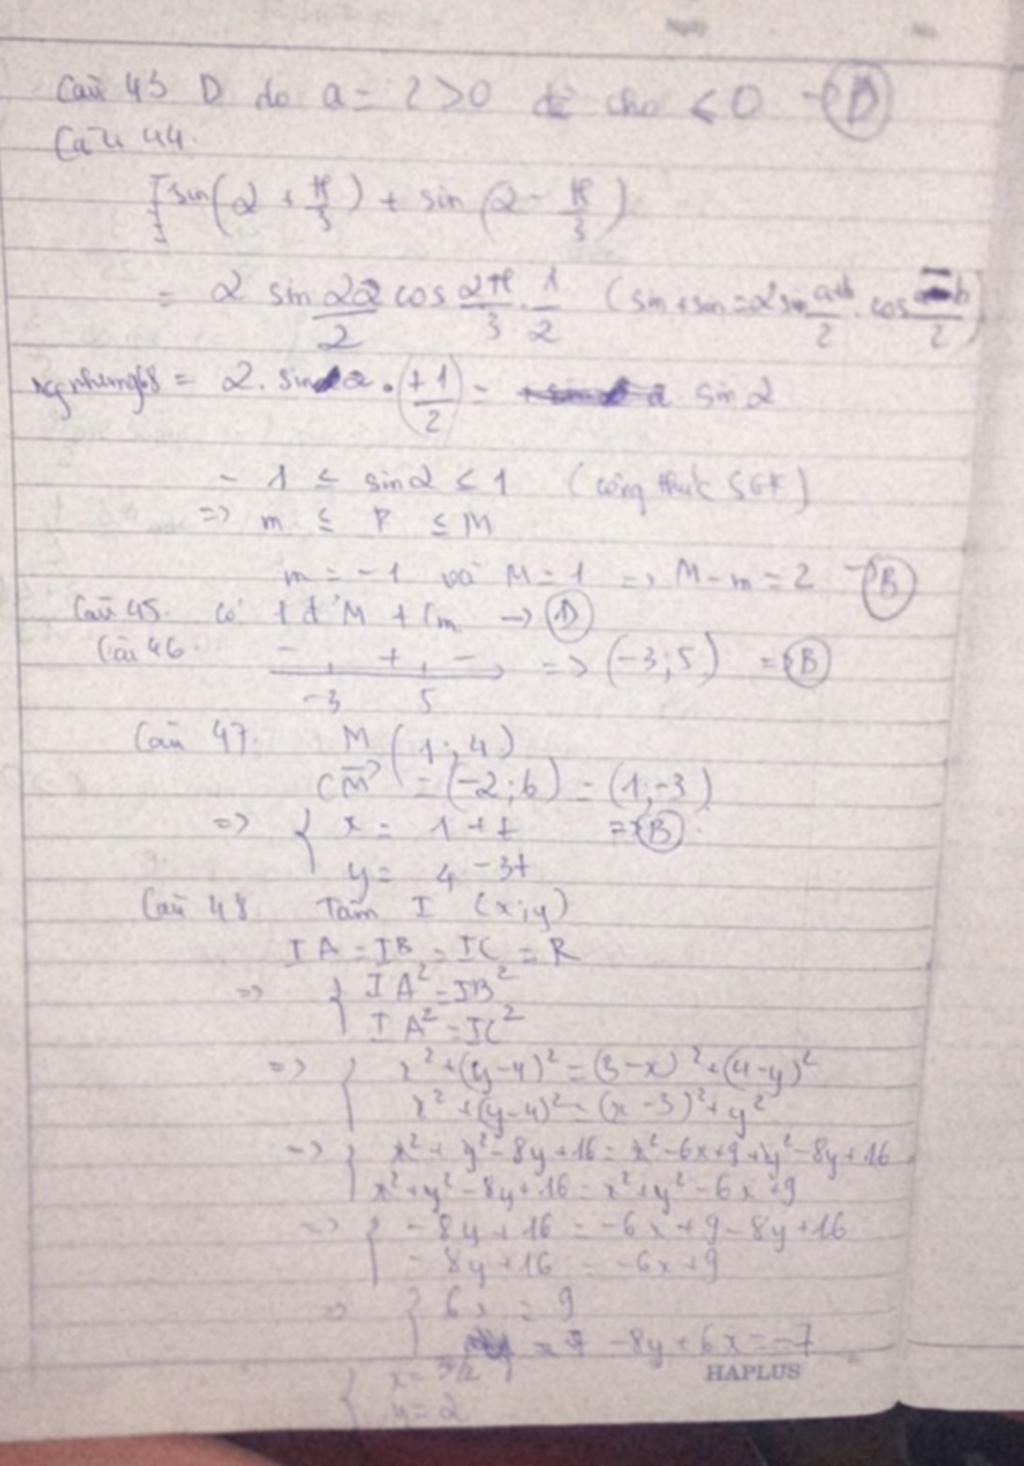 Câu 43 D do a = 2 > 0 đề cho < 0 → D
Câu 44.
sin(α + π/3) + sin(α - π/3)
= 2 sin 2α/2 cos 2π/3 . 1/2 (sin + sin = 2 sin a+b/2 . cos a-b/2)
= 2. sin α . (+1/2) = sin α
- 1 ≤ sin α ≤ 1 (công thức SGK)
=> m ≤ P ≤ M
m = -1 và M = 1 => M - m = 2 → B
Câu 45. có 1 đ' M + (m → D
Câu 46. - + - => (-3; 5) => B
-3 5
Câu 47. M (1; 4)
CM = (-2; 6) = (1; -3)
=> { x = 1 + t => B.
y = 4 - 3t
Câu 48 Tâm I (x; y)
IA = IB = IC = R
=> { IA² = IB²
IA² = IC²
=> { x² + (y-4)² = (3-x)² + (4-y)²
x² + (y-4)² = (x-3)² + y²
=> { x² + y² - 8y + 16 = x² - 6x + 9 + y² - 8y + 16
x² + y² - 8y + 16 = x² + y² - 6x + 9
=> { -8y + 16 = -6x + 9 - 8y + 16
- 8y + 16 = -6x + 9
=> { 6x = 9
-8y + 6x = -7
HAPLUS
{ x = 3/2
y = 2